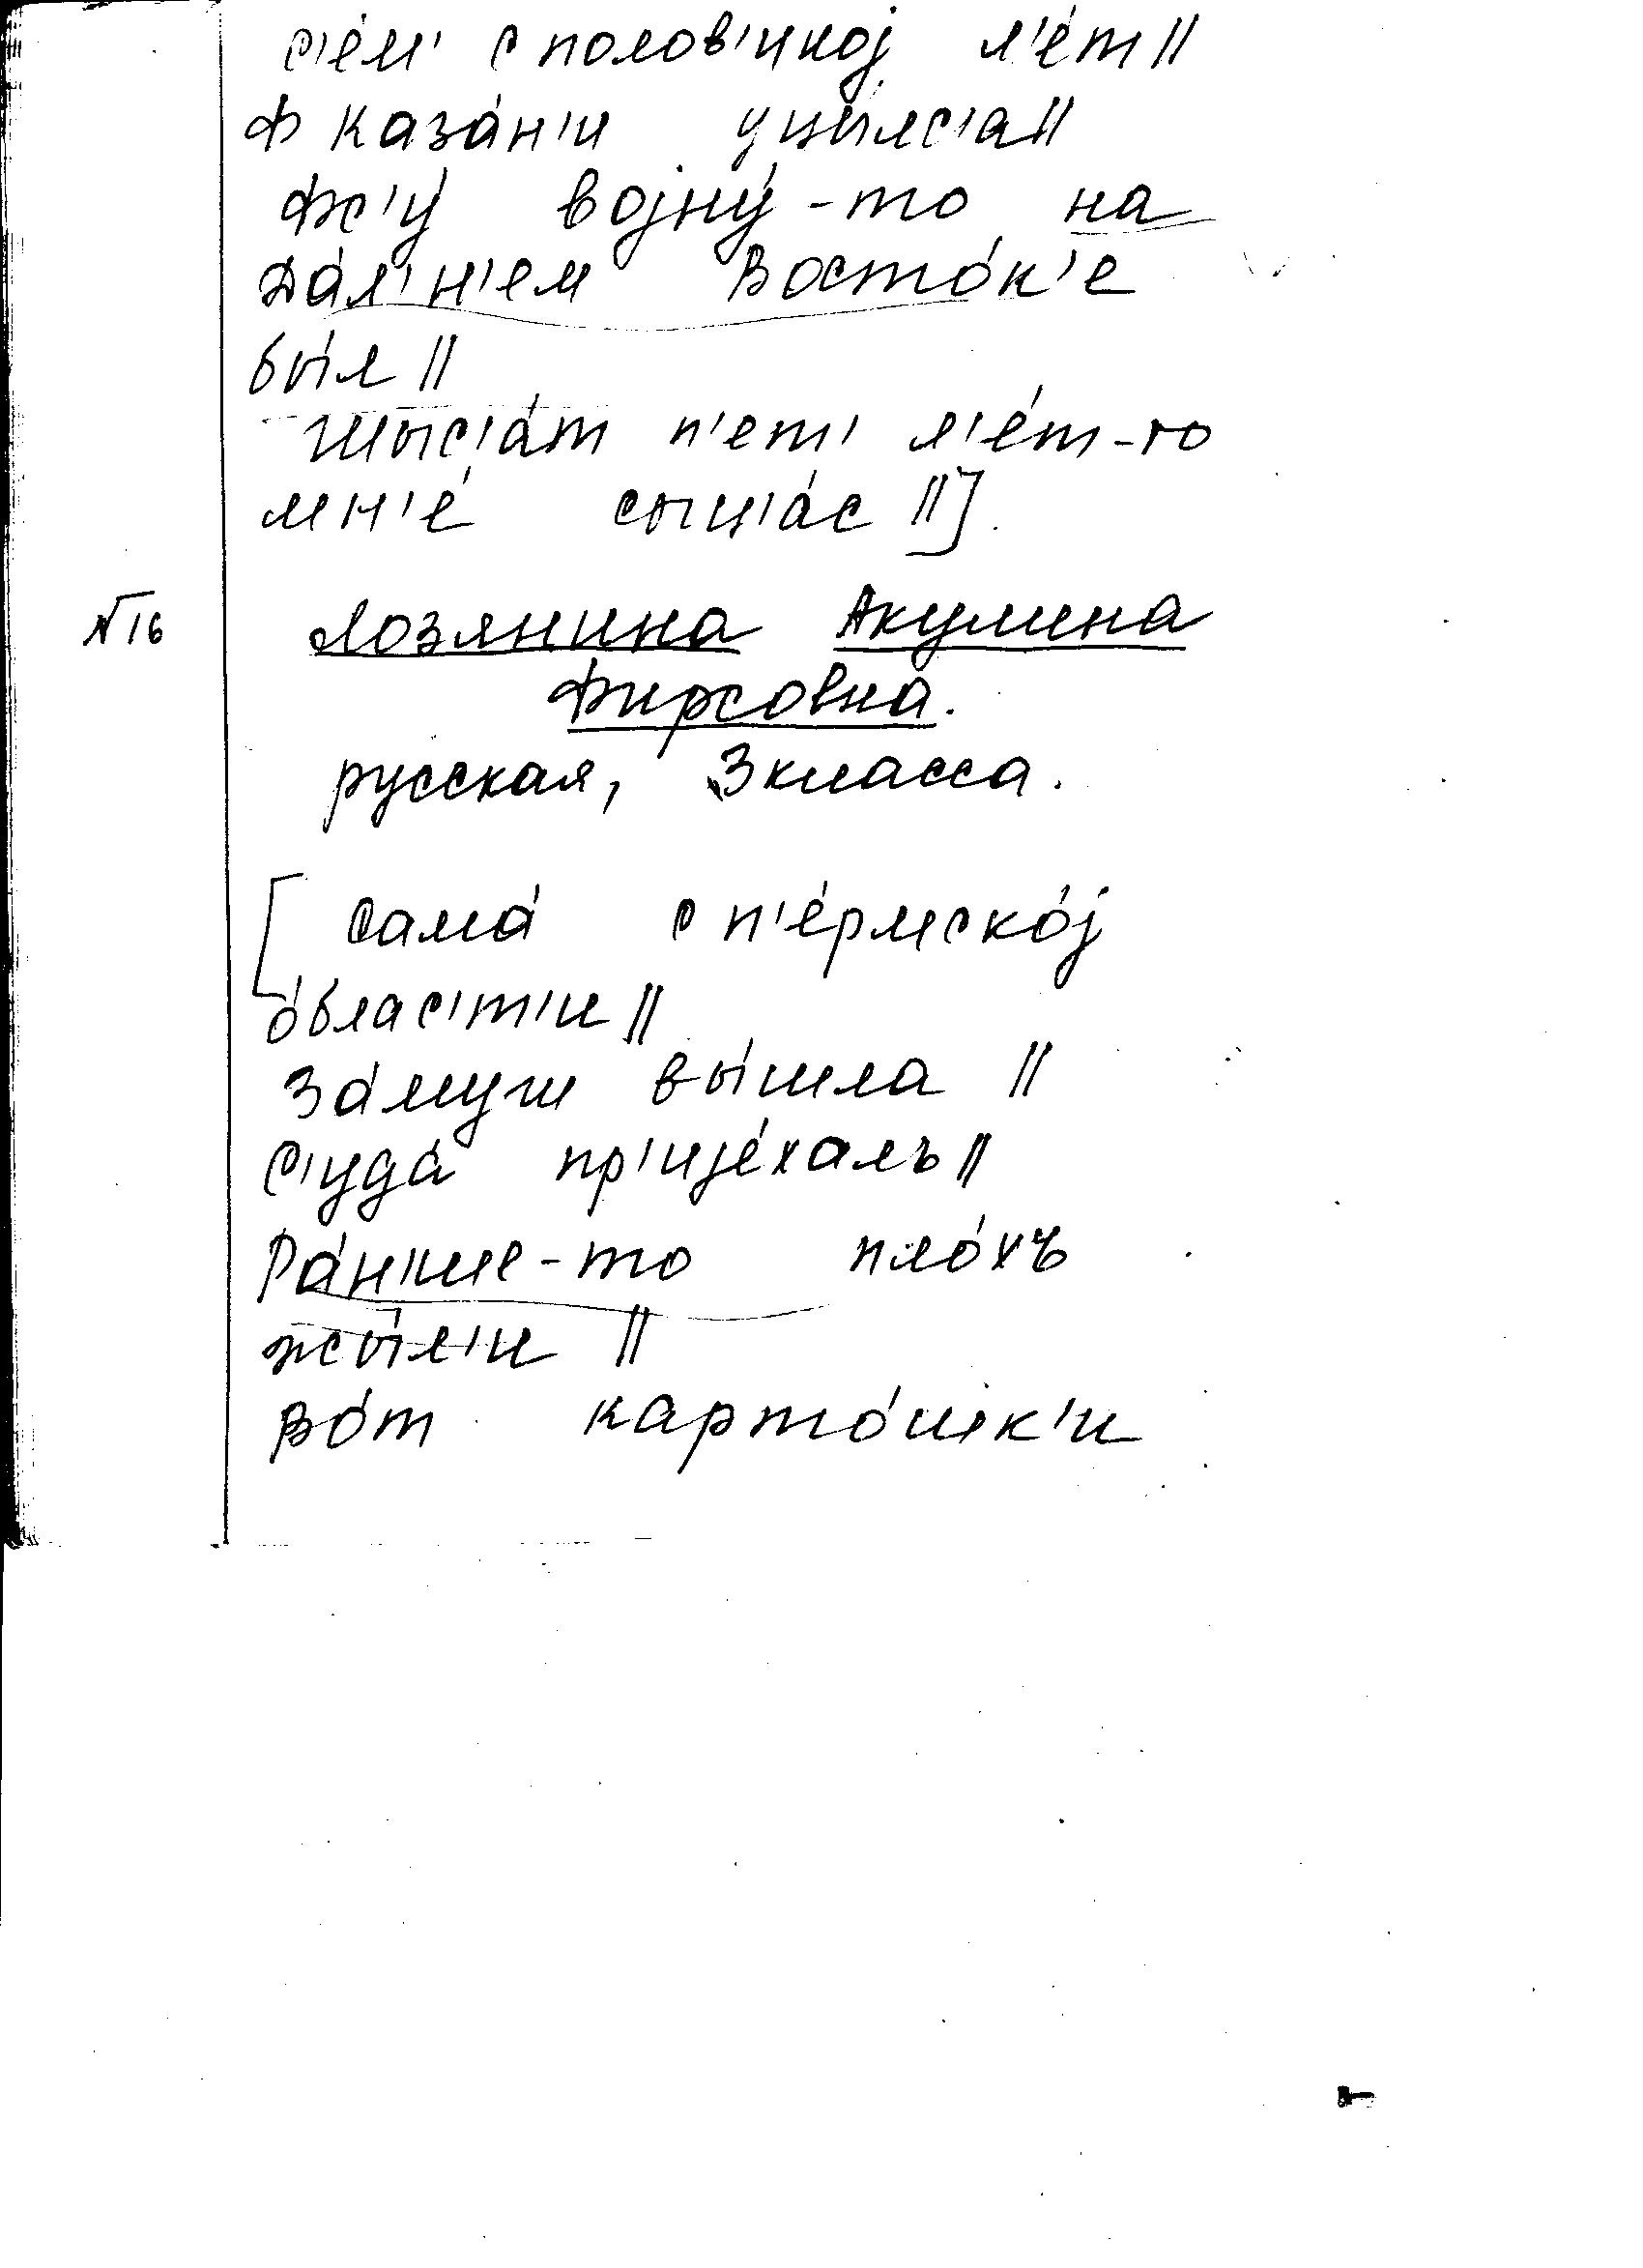 с'е́м' с полов'инoj л'е́т ||
ф каза́н'и уцы́лс'а ||
фс'у́ војну́-то на
да́л'н'ем восто́к'е
бы́л ||
шыс'а́т п'ет' л'е́т-то
мн'е́ сыц'а́с ||].
№16 Лозянина Акулина
Фирсовна.
русская, 3 класса.
[сама́ с п'е́рмско́ј
о́блас'т'и ||
за́муш вы́шла ||
с'уда́ пр'ијéхалъ ||
ра́н'ше-то пло́хъ
жы́л'и ||
во́т карто́шк'и